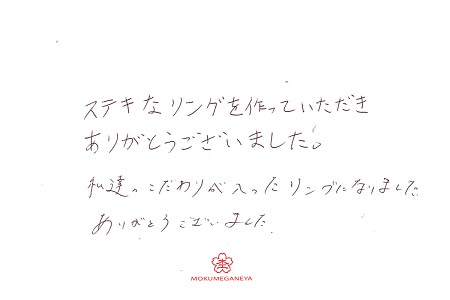 ステキなリングを作っていただき
ありがとうございました。
私達のこだわりが入ったリングになりました
ありがとうございました
MOKUMEGANEYA